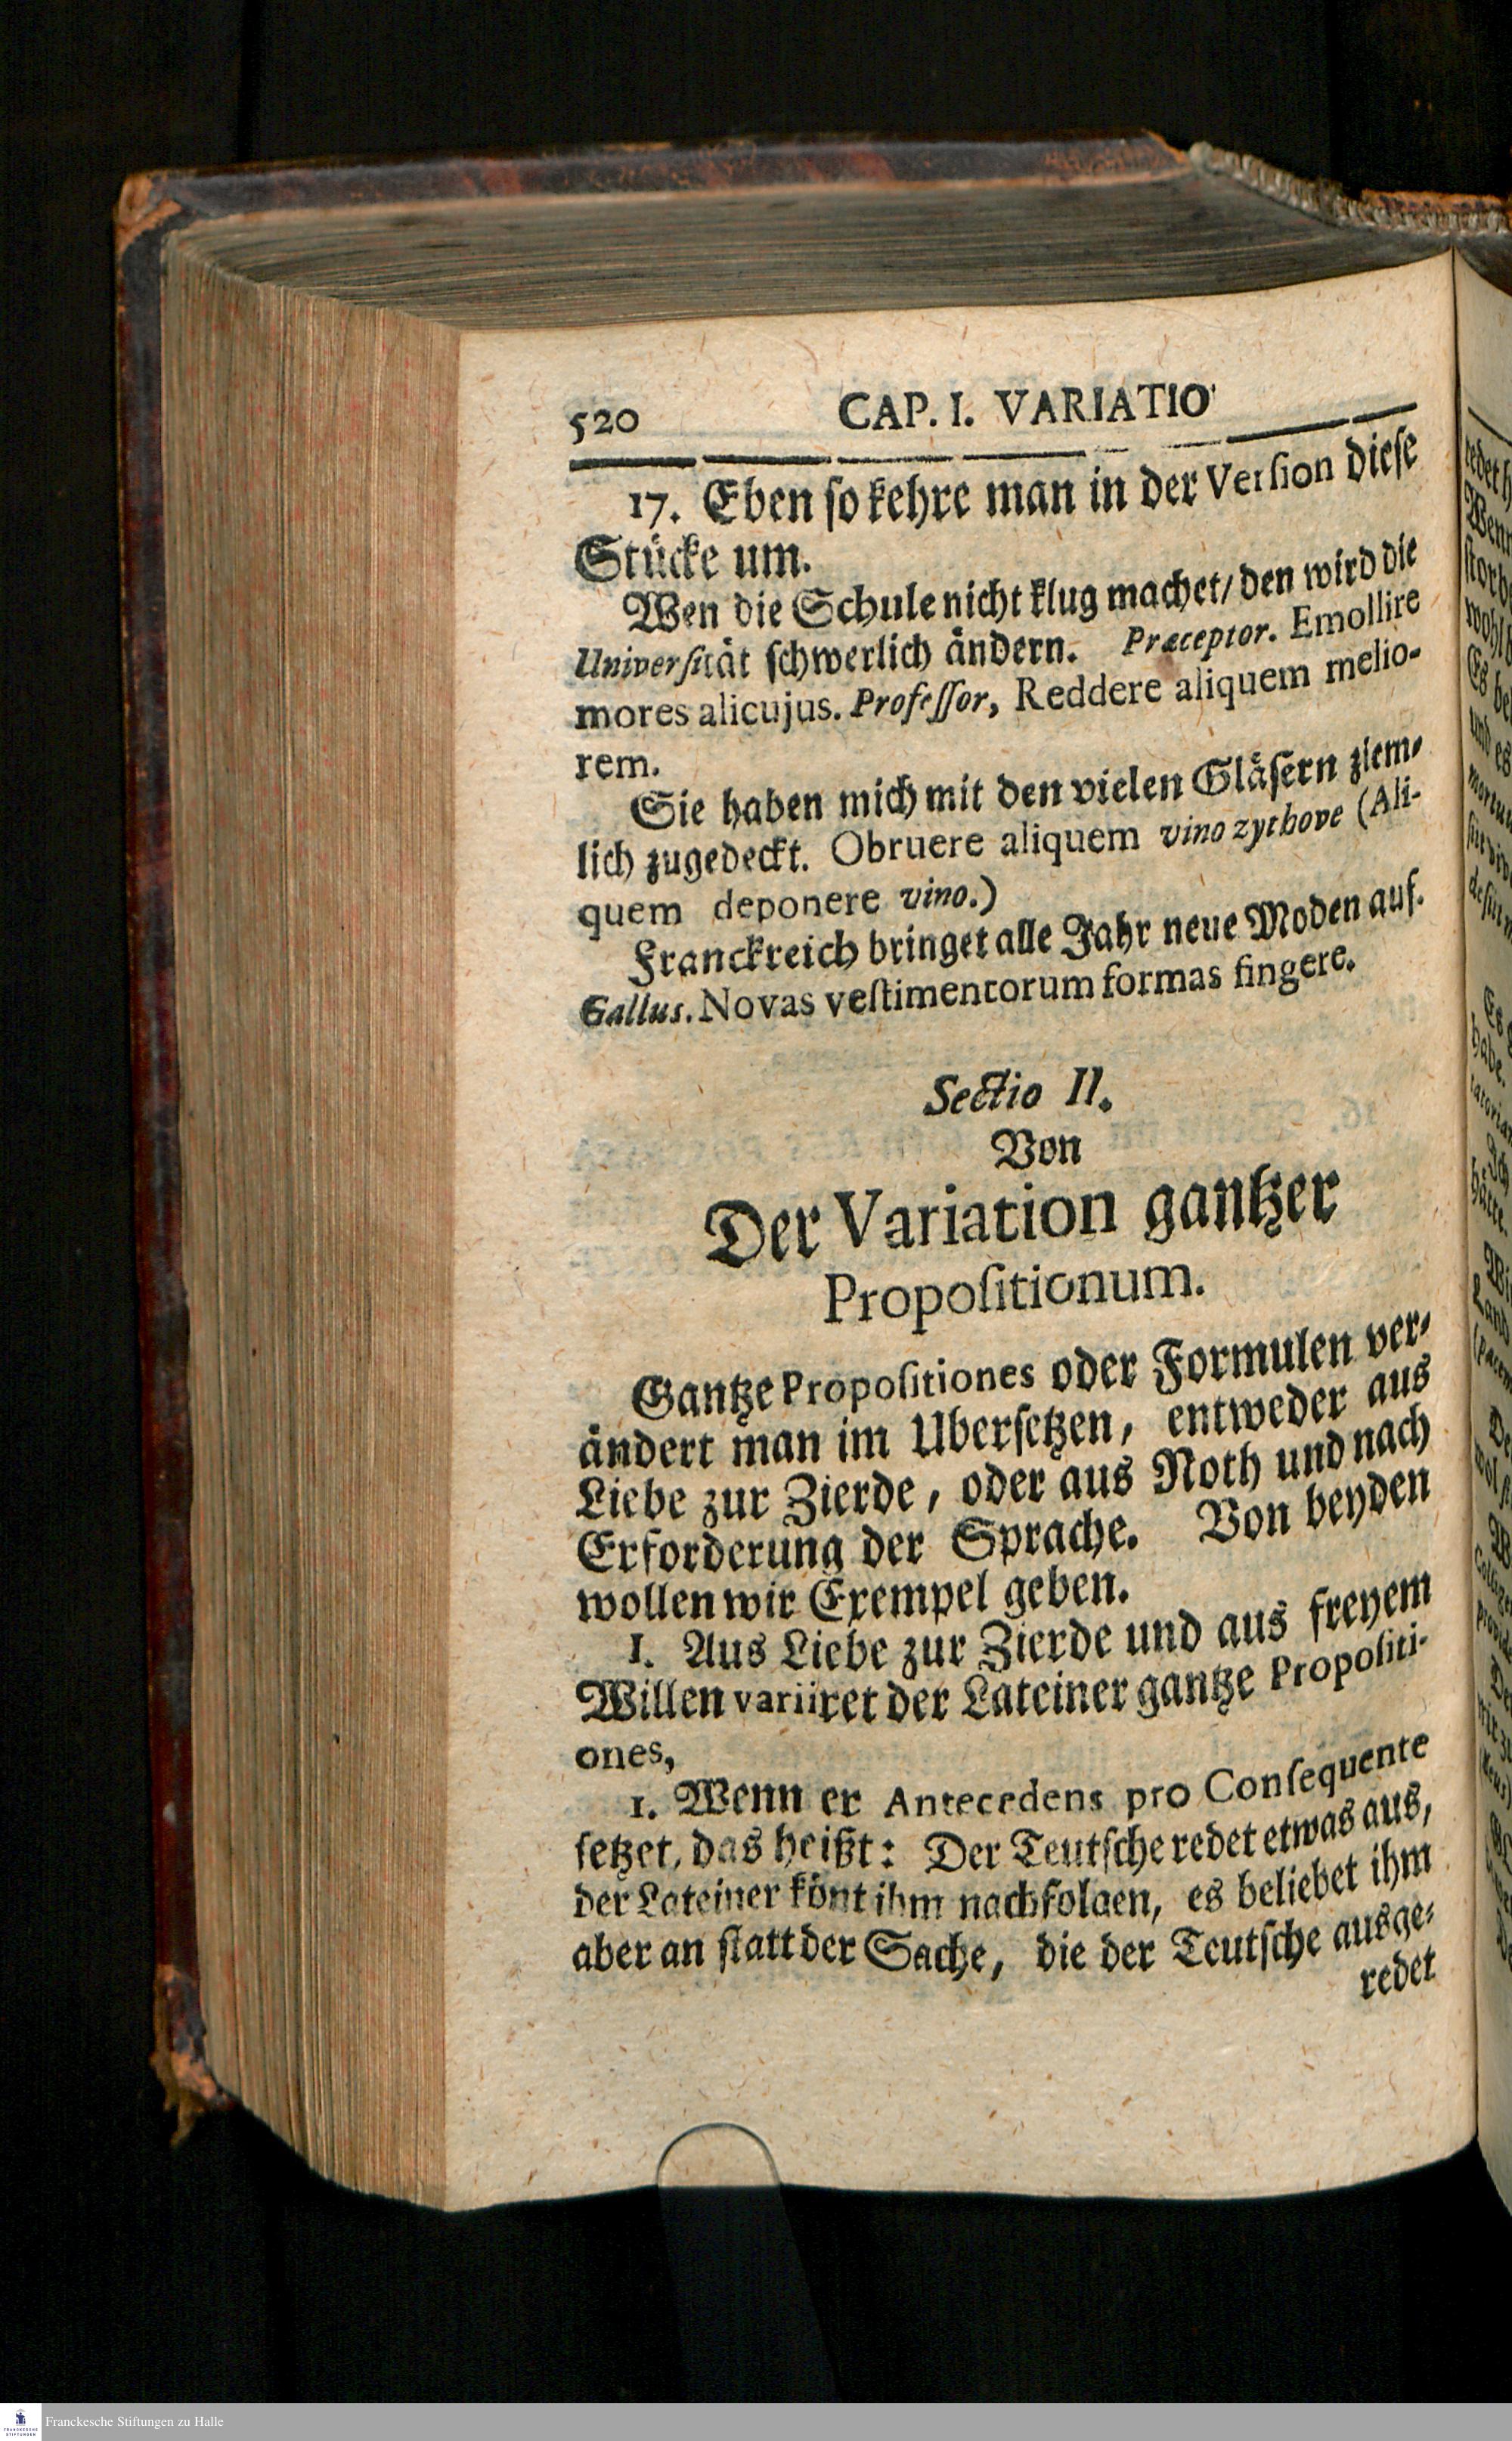 520 CAP. I. VARIATIO
17. Eben so kehre man in der Version diese
Stücke um.
Wen die Schule nicht klug machet/ den wird die
Universität schwerlich ändern. Præceptor. Emollire
mores alicujus. Professor, Reddere aliquem melio-
rem.
Sie haben mich mit den vielen Gläsern ziem-
lich zugedeckt. Obruere aliquem vino zythove (Ali-
quem deponere vino.)
Franckreich bringet alle Jahr neue Moden auf.
Gallus. Novas vestimentorum formas fingere.
Sectio II.
Von
Der Variation gantzer
Propositionum.
Gantze Propositiones oder Formulen ver-
ändert man im Ubersetzen, entweder aus
Liebe zur Zierde, oder aus Noth und nach
Erforderung der Sprache. Von beyden
wollen wir Exempel geben.
I. Aus Liebe zur Zierde und aus freyem
Willen variiret der Lateiner gantze Propositi-
ones,
1. Wenn er Antecedens pro Consequente
setzet, das heißt: Der Teutsche redet etwas aus,
der Lateiner könt ihm nachfolgen, es beliebet ihm
aber an statt der Sache, die der Teutsche ausge-
redet
Franckesche Stiftungen zu Halle